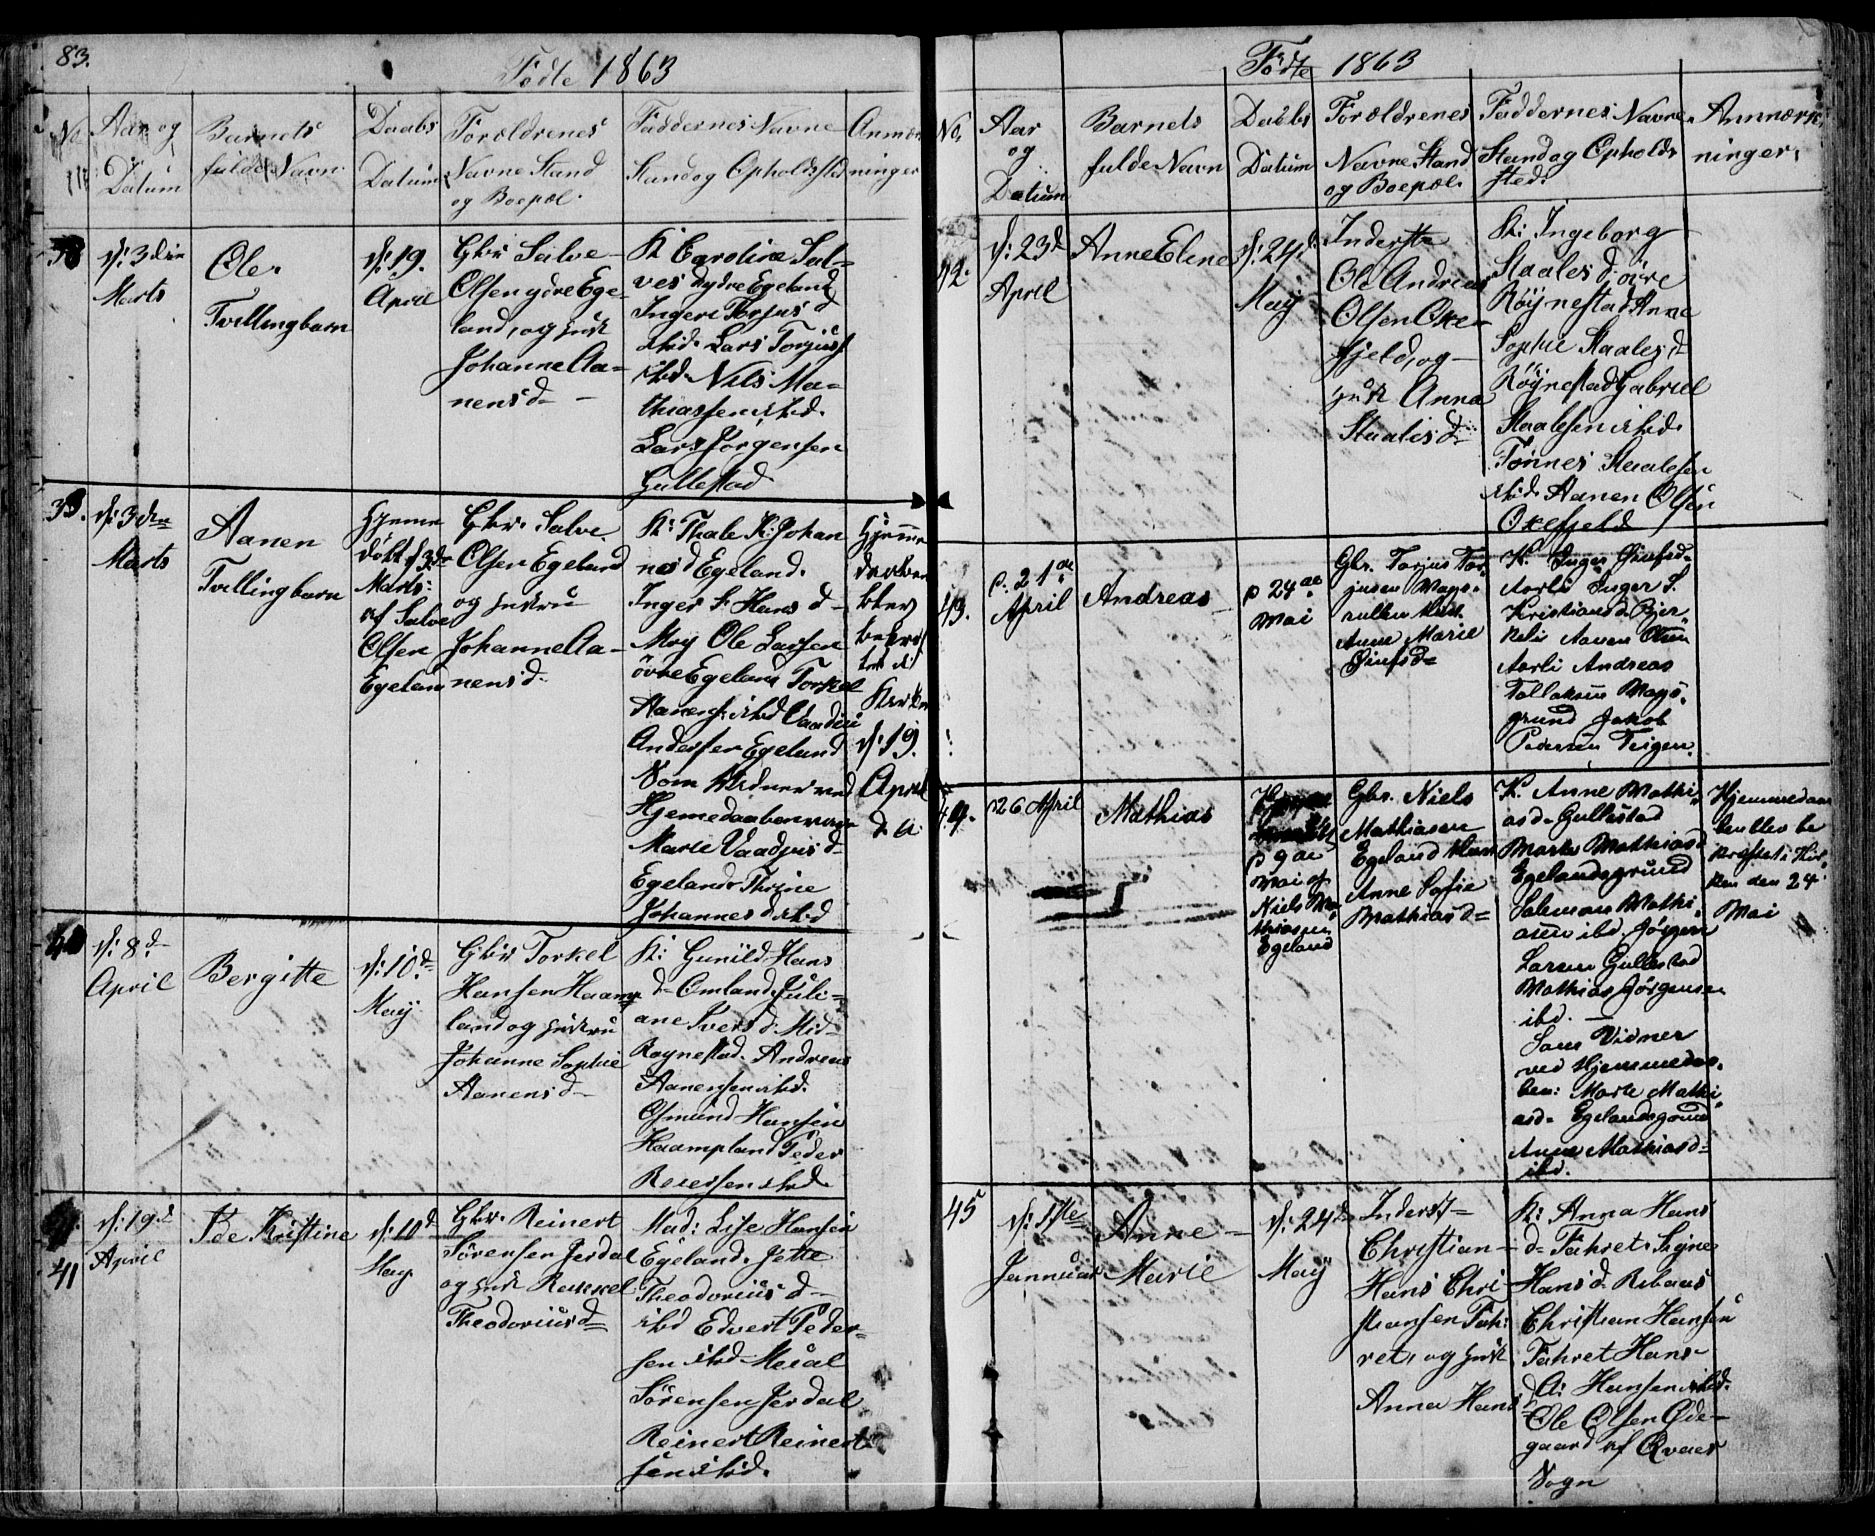 83.
Födte 1863
No.
Aar og
Datum
Barnets
fulde Navn
Daabs
Datum
Forældrenes
Navne Stand
og Boepæl.
Faddernes Navne
Stand og Opholdsted
Anmær
ninger
38
d: 3die
Marts
Ole.
Tvillingbarn
d: 19.
April
Gbr Salve
Olsen ydre Ege-
land, og hust
Johanne Aa-
nensd-
K: Caroline Sal-
ves d ydre Egeland
Inger Torjus d
ibid. Lars Torjus
ibid. Nils Ma-
thiassen ibid.
Lars Jørgensen
Gullestad
39.
d: 3die
Marts
Aanen
Tvillingbarn
Hjeme
döbt d 3die
Marts:
af Salve
Olsen
Egeland
Gbr. Salve
Olsen Egeland
og hustru
Johanne Aa-
nensd.
K: Thale K. Johan
nesd Egeland.
Inger S. Hans d-
Moy Ole Larsen
övre Egeland Torkel
Aanens. ibid Vaadjus
Andersen Egeland
Som Vidner ved
Hjemedaaben vare
Marie Vaadjus d-
Egeland Thrine
Johannes d ibid
Hjemme
daaben
blev
bekræf
tet i
Kirken
d: 19.
April
d. A.
40
d: 8d
April
Bergitte
d: 10d
May
Gbr Torkel
Hansen Haamp
land og hustru
Johanne Sophie
Aanensd-
K: Gunild Hans
d- Omland. Juli-
ane Ivers d: Mid-
Røynestad. Andreas
Aanensen ibid.
Osmund Hansen
Haampland Peder
Reiersen ibid.
41
d: 19d
April
Ide Kristine
d: 10d
May.
Gbr. Reinert
Sörensen Jerdal
og hust Rakkel
Theodoriusd-
Mad: Lise Hansen
Egeland. Jette
Theodorius d-
ibd Edvert Peder-
sen ibid
Sörensen Jerdal
Reinert Reinert
sen ibid.
Födte 1863
No.
Aar
og
Datum
Barnets
fulde Navn
Daabs
Datum
Forældrenes
Navne Stand
og Boepæl.
Faddernes Navne
Stand og Opholds
sted.
Anmærk
ninger.
42.
d: 23d
April
Anne Elene
d: 24d
May
Inderste
Ole Andreas
Olsen Oke-
fjeld, og
hust Anna
Staales d-
K: Ingeborg
Staales d: øvre
Røynestad Anne
Sophie Staales d
Røynestad Gabriel
Staalesen ibid.
Tønnes Staalesen
ibid. Aanen Olsen
Okefjeld
43.
d. 21de
April
Andreas
d 24de
Mai
Gbr. Torjus Tor-
jusen Mags-
Anne Marie
K. Inger
Aarli Inger S.
Kristiansd Bjer-
kelie Aanen Olsen
Aarli Andreas
Tollaksen Mags-
grund Jakob
Pedersen Teigen.
44.
d 26 April
Mathias
d 9de
Mai af
Niels Ma-
thiasen
Egeland
Gbr. Niels
Mathiasen
Egeland
Anne Sofie
Mathiasd-
K. Anne Mathi
asd- Gullestad
Marte Mathiasd
Egelandsgrund
Salomon Mathi
asen ibd. Jørgen
Larsen Gullestad
Mathias Jørgensen
ibd. -
Som Vidner
ved Hjemmedaa-
ben: Marte Mathi-
asd- Egelandsgrund
Anne Mathiasd-
ibd.
Hjemmedaa
ben blev be
kræftet i Kir-
ken den 24
Mai
45
d: 17de
Januar
Anne-
Marie
d: 24d
May
Inderst-
Christian-
Hans Chri
stiansen Fah-
ret, og hust
Anna Hans
K: Anna Hans
d- Fahret. Signe
Hans d. Ribaas
Christian Hansen
Fahret Hans
Hansen ibid.
Ole Olsen Øde-
gaard af Qvaas
Sogn